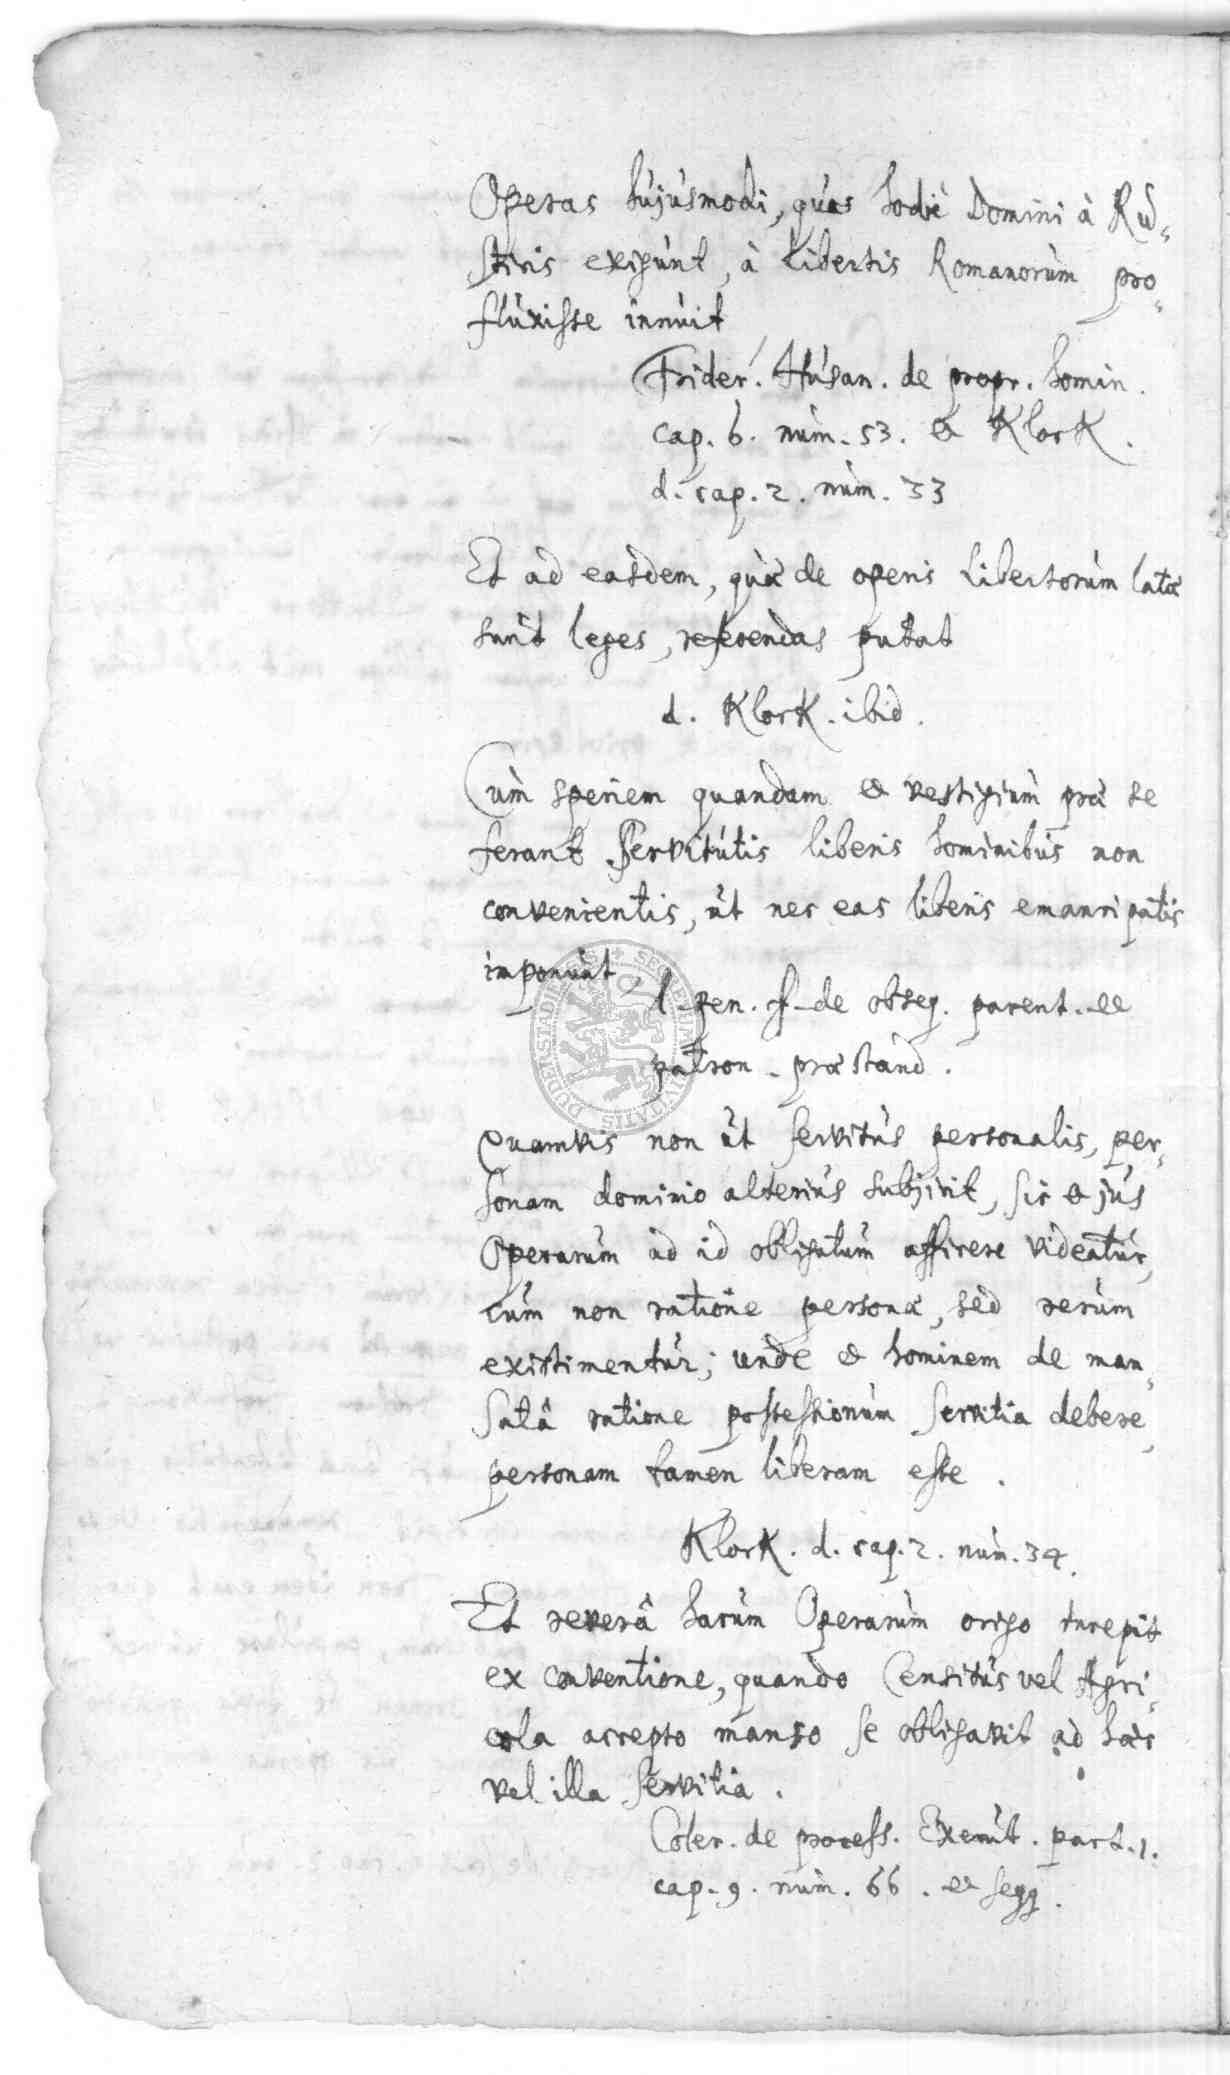 Operas hujusmodi, quas hodiè Domini à Ru-
sticis exigunt, à Libertis Romanorum pro-
fluxisse innuit
Frider. Husan. de propr. homin.
cap. 6. num. 53. & Klock.
d. cap. 2. num. 33
Et ad easdem, quæ de operis Libertorum latæ
sunt leges, referendas putat
d. Klock. ibid.
Cum speciem quandam & vestigium præ se
ferant servitutis liberis hominibus non
convenientis, ut nec eas liberis emancipatis
imponunt
l. pen. ff. de obseq. parent. et
patron. præstand.
Quamvis non ut servitus personalis, per-
sonam dominio alterius subjicit, sic & jus
Operarum ad id obligatum afficere videatur,
cum non ratione personæ, sed rerum
existimentur; unde & hominem de man-
satâ ratione possessionum servitia debere,
personam tamen liberam esse.
Klock. d. cap. 2. num. 34.
Et reverâ harum Operarum origo incepit
ex conventione, quando Censitus vel Agri-
cola accepto manso se obligavit ad hæc
vel illa servitia.
Coler. de process. Execut. part. 1.
cap. 9. num. 66. et seqq.
DUDERSTADIENSIS + SECRETUM CIVITATIS